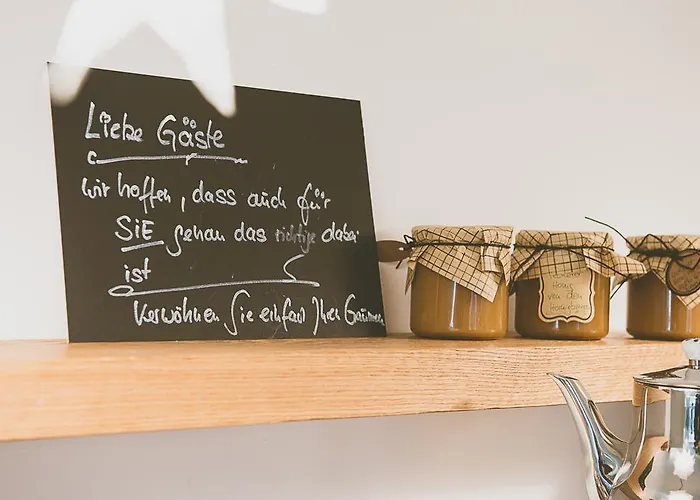 Liebe Gäste
wir hoffen, dass auch für
SIE genau das richtige dabei
ist
Verwöhnen Sie einfach Ihren Gaumen
Honig
von dem